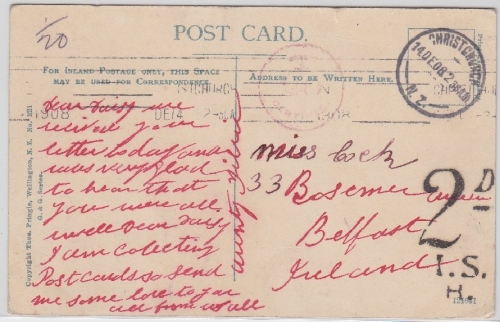 1/20
POST CARD.
FOR INLAND POSTAGE ONLY, THIS SPACE
MAY BE USED FOR CORRESPONDENCE.
ADDRESS TO BE WRITTEN HERE.
CHRISTCHURCH
14 DE 08
N.Z.
1908 DE 14
1908
Dear Daisy we
recived your
letter today and
was very glad
to hear that
you were all
well Dear Daisy
I am colecting
Post cards so send
me some love to you
all from us all
Miss Cock
33
Belfast
Ireland
2D
I.S.
R.
Copyright Thos. Pringle, Wellington, N. Z. No. 1251
G. & G. Series.